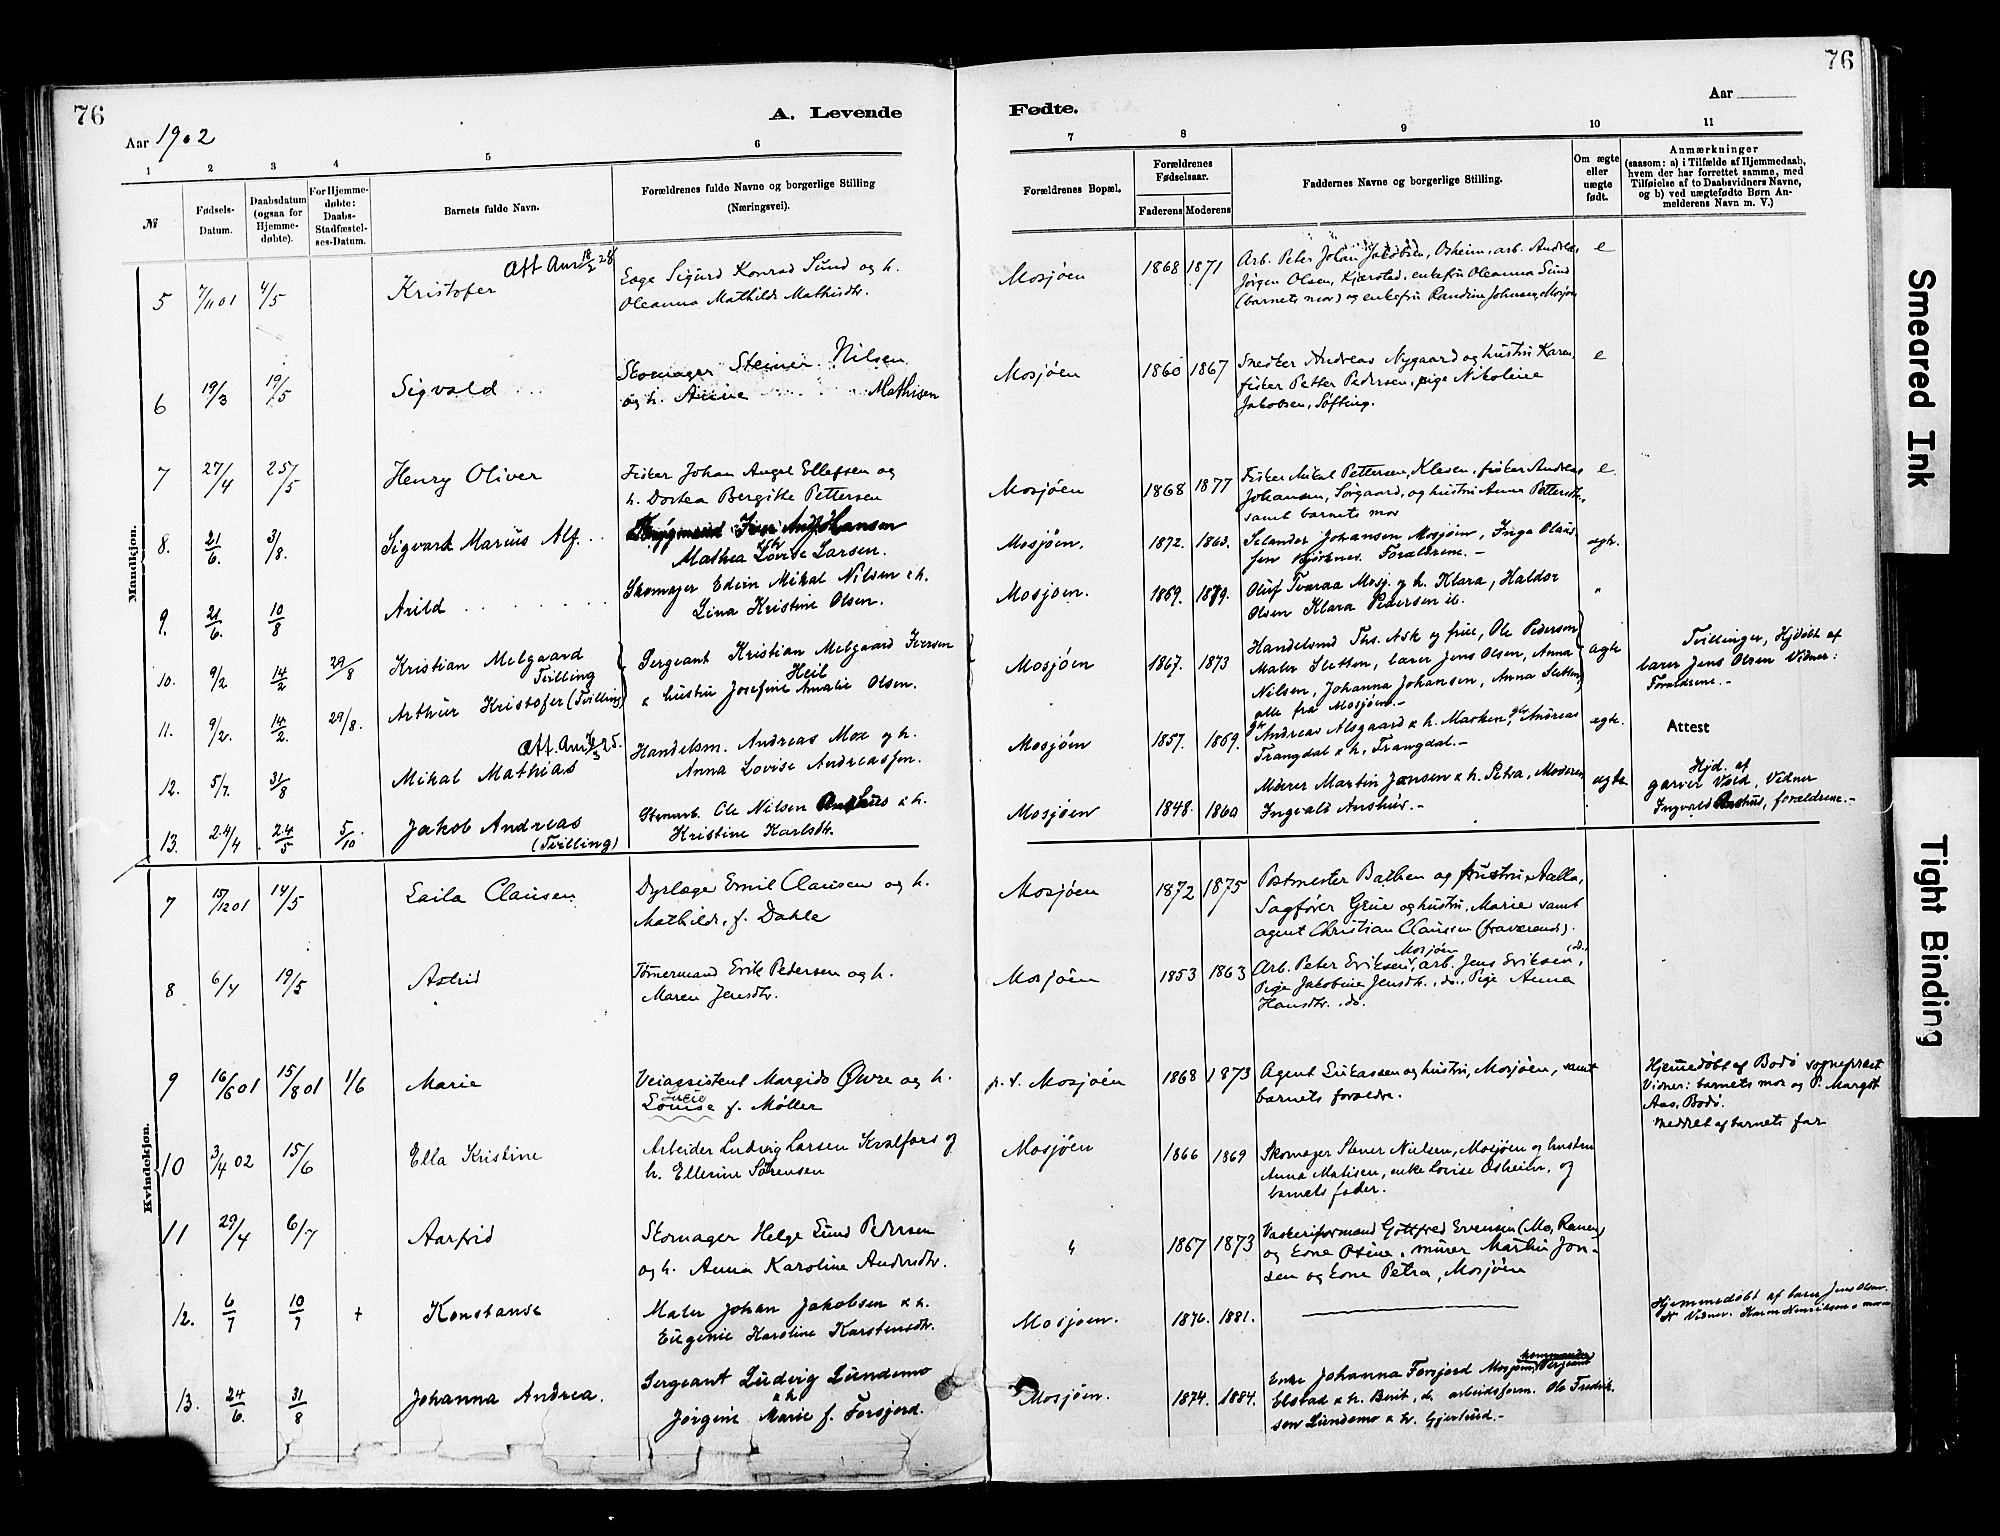 76
A. Levende
Aar 1902
1 2 3 4 5 6
№
Fødsels-Datum.
Daabsdatum (ogsaa for Hjemme-døbte).
For Hjemme-døbte: Daabs-Stadfæstel-ses-Datum.
Barnets fulde Navn.
Forældrenes fulde Navne og borgerlige Stilling (Næringsvei).
76
Fødte.
Aar
7 8 9 10 11
Forældrenes Bopæl.
Forældrenes Fødselsaar.
Faderens Moderens
Faddernes Navne og borgerlige Stilling.
Om ægte eller uægte født.
Anmærkninger
(saasom: a) i Tilfælde af Hjemmedaab,
hvem der har forrettet samme, med
Tilføielse af to Daabsvidners Navne,
og b) ved uægtefødte Børn An-
melderens Navn m. V.)
Mandkjøn.
5 7/11 01 4/5 Kristofer
Sigurd Konrad Lund og h.
Oleanna Mathilde Mathisdtr.
Mosjøen 1868 1871
Arb. Peter Johan Jakobsen, Osheim, arb. Andreas
Jørgen Olsen, Kjærstad, enkefru Oleanna Lund
(barnets mor) og enkefru Randine Johnsen, Mosjøen
e
6 19/3 19/5 Sigvald
Skomager Steiner Nilsen
og h. Anne Mathisen
Mosjøen 1860 1867
Snedker Andreas Nygaard og hustru Karen,
fisker Petter Pedersen, pige Nikoline
Jakobsen, Søfting.
e
7 27/4 25/5 Henry Oliver
Fisker Johan Angel Ellefsen og
h. Dortea Bergitte Pettersen
Mosjøen 1868 1877
Fisker Mikal Pettersen, fisker Andreas
Johansen, Sørgaard, og hustru Anna Pettersdtr.,
samt barnets mor
e.
8. 21/6. 3/8. Sigvard Marius Alf
Hansen
Mathea Lovise Larsen.
Mosjøen. 1872. 1863.
Johansen Mosjøen, Inga
Forældrene. -
ægte.
9. 21/6. 10/8 Arild
Skomager Edvin Mikal Nilsen & h.
Lina Kristine Olsen.
Mosjøen. 1869. 1879.
Oluf Tveraa Mosj. og h. Klara, Haldor
Olsen Klara Pedersen ib.
"
10. 9/2 14/2 29/8 Kristian Melgaard
Tvilling
Sergeant Kristian Melgaard Iversen
Heil
& hustru Josefine Amalie Olsen.
Mosjøen 1867. 1873
Handelsmd Ths. Ask og frue, Ole Pedersen
Maler Sletten, lærer Jens Olsen, Anna
Nilsen, Johanna Johansen, Anna Sletten,
alle fra Mosjøen. -
ægte
Tvillinger, Hjdøbt af
lærer Jens Olsen Vidner:
Forældrene. -
11. 9/2. 14/2. 29/8. Arthur Kristofer (Tvilling)
12. 5/7. 31/8 Mikal Mathias
Handelsm. Andreas Moe og h.
Anna Lovise Andreassen.
Mosjøen 1857. 1869.
Andreas Alsgaard & h. Marken, Andreas
Trangdal & h. Trangdal. -
ægte.
Attest
13. 24/4 24/5 5/10 Jakob Andreas
(Tvilling)
Stenarb. Ole Nilsen & h.
Kristine Karlsdtr.
Mosjøen 1848. 1860
Murer Martin Jensen & h. Petra, Moderen
Ingvald Aushus. -
ægte
Hjd. af
garver Vold, Vidner
Ingvald Aushus, forældrene. -
Kvindekjøn.
7 15/12 01 14/5 Laila Clausen
Dyrlæge Emil Clausen og h.
Mathilde, f. Dahle
Mosjøen 1872 1875
Postmester Bathen og hustru Aalla,
Sagfører Grue og hustru, Marie samt
agent Christian Claussen (fraværende).
8 6/4 19/5 Astrid
Tømermand Erik Pedersen og h.
Maren Jensdtr.
Mosjøen 1853 1863
Mosjøen
Arb. Peter Eriksen, arb. Jens Eriksen, do.,
Pige Jakobine Jensdtr., do., Pige Anna
Hansdtr., do.
9 16/6 01 15/8 01 1/6 Marie
Veiassistent Margido Øvre og h.
Louise f. Møller
p. t. Mosjøen 1868 1873
Agent Lukassen og hustru, Mosjøen, samt
barnets forældre.
Hjemmedøbt af Bodø sogneprest
Vidner: barnets mor og P. Margot
Aas, Bodø.
meddelt af barnets far
10 3/4 02 15/6 Ella Kristine
Arbeider Ludvig Larsen Kvalfors og
h. Ellerine Sørensen
Mosjøen 1866 1869
Skomager Stener Nielsen, Mosjøen og hustru
Anna Matisen, enke Lovise Osheim, og
barnets fader.
11 29/4 6/7 Aarfrid
Skomager Helge Lund Pedersen
og h. Anna Karoline Andersdtr.
" 1867 1873
Gottfred Evensen (Mo, Ranen)
og kone Osine, murer Martin Jon-
sen og kone Petra, Mosjøen
12. 6/7 10/7 + Konstanse
Maler Johan Jakobsen & h.
Eugenie Karoline Karstensdtr.
Mosjøen. 1876. 1881.
Hjemmedøbt af lærer Jens Olsen
Vidner. Karen Henriksen & moren
13. 24/6. 31/8 Johanna Andrea.
Sergeant Ludvig Lundemo
& h.
Jørgine Marie f. Forsjord.
Mosjøen. 1874. 1884.
Enke Johanna Forsjord Mosjøen, Sergeant
Elstad & h. Berit, do, arbeidsform. Ole Fredrik-
sen Lundemo & h. Gjertrud. -
Smeared Ink
Tight Binding